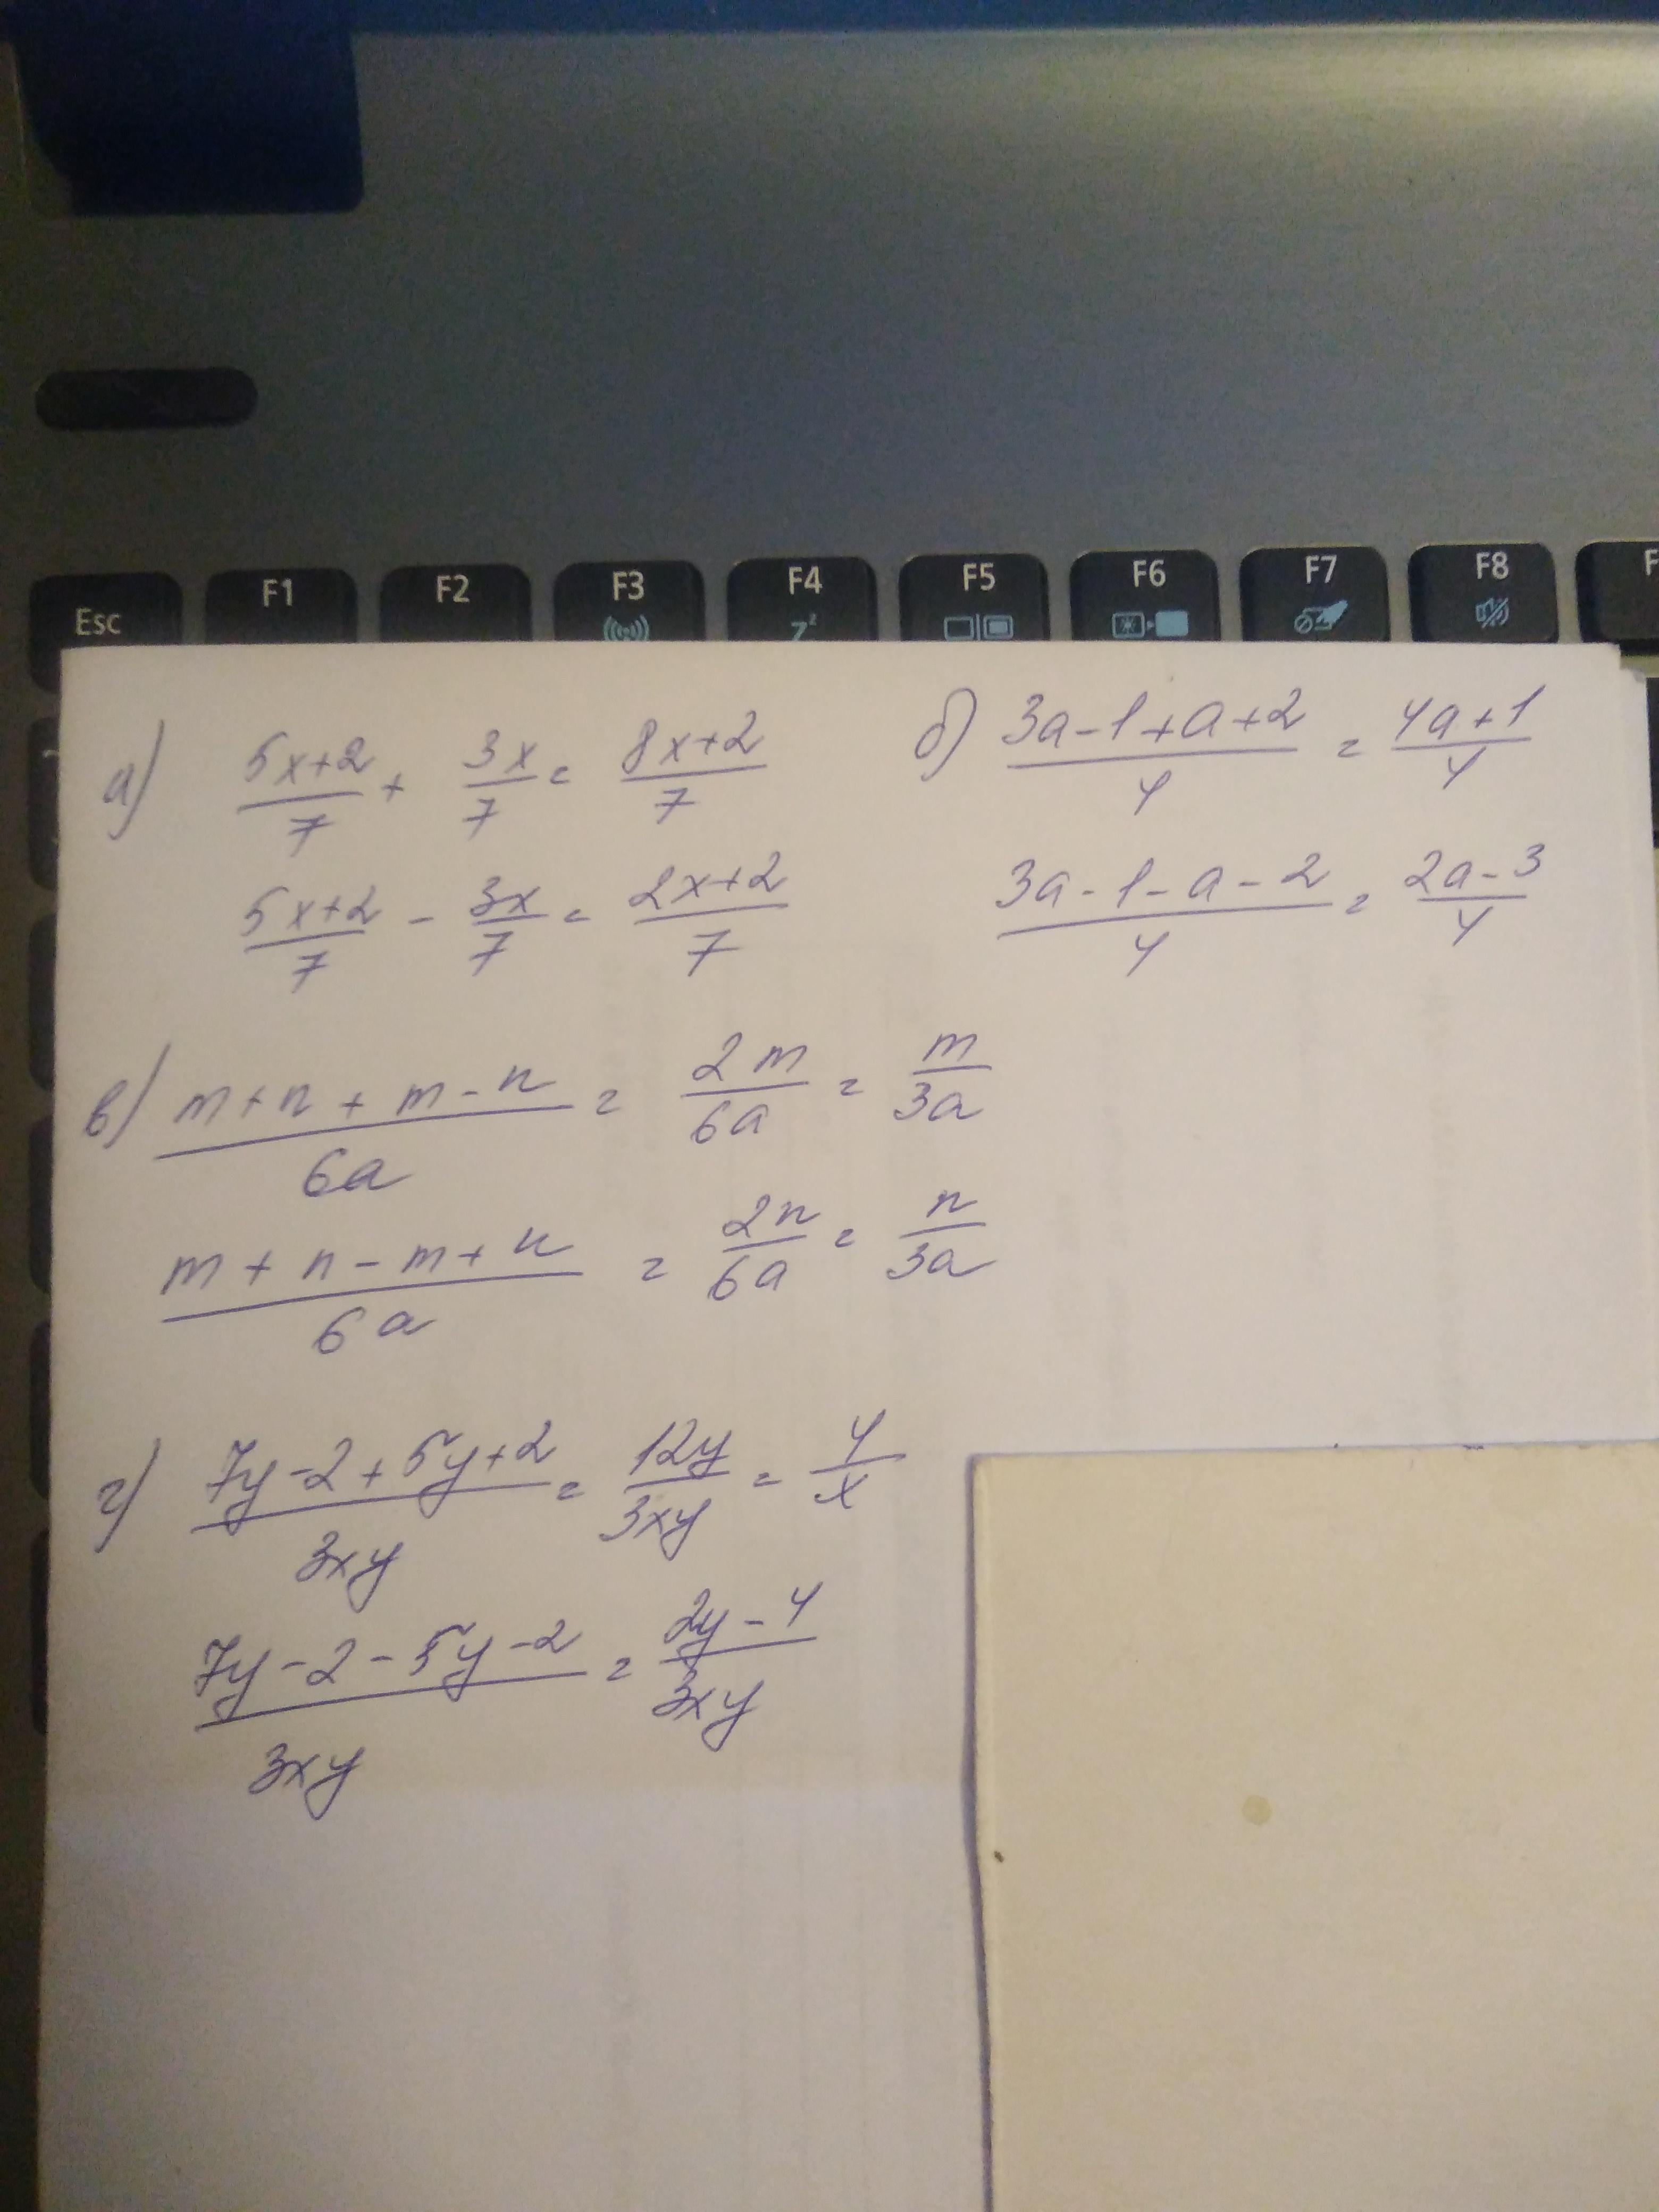 Esc F1 F2 F3 F4 F5 F6 F7 F8 F
Z^z
а) (5x+2)/7 + 3x/7 = (8x+2)/7
(5x+2)/7 - 3x/7 = (2x+2)/7
б) (3a-1+a+2)/4 = (4a+1)/4
(3a-1-a-2)/4 = (2a-3)/4
в) (m+n+m-n)/6a = 2m/6a = m/3a
(m+n-m+n)/6a = 2n/6a = n/3a
г) (7y-2+5y+2)/3xy = 12y/3xy = 4/x
(7y-2-5y-2)/3xy = (2y-4)/3xy